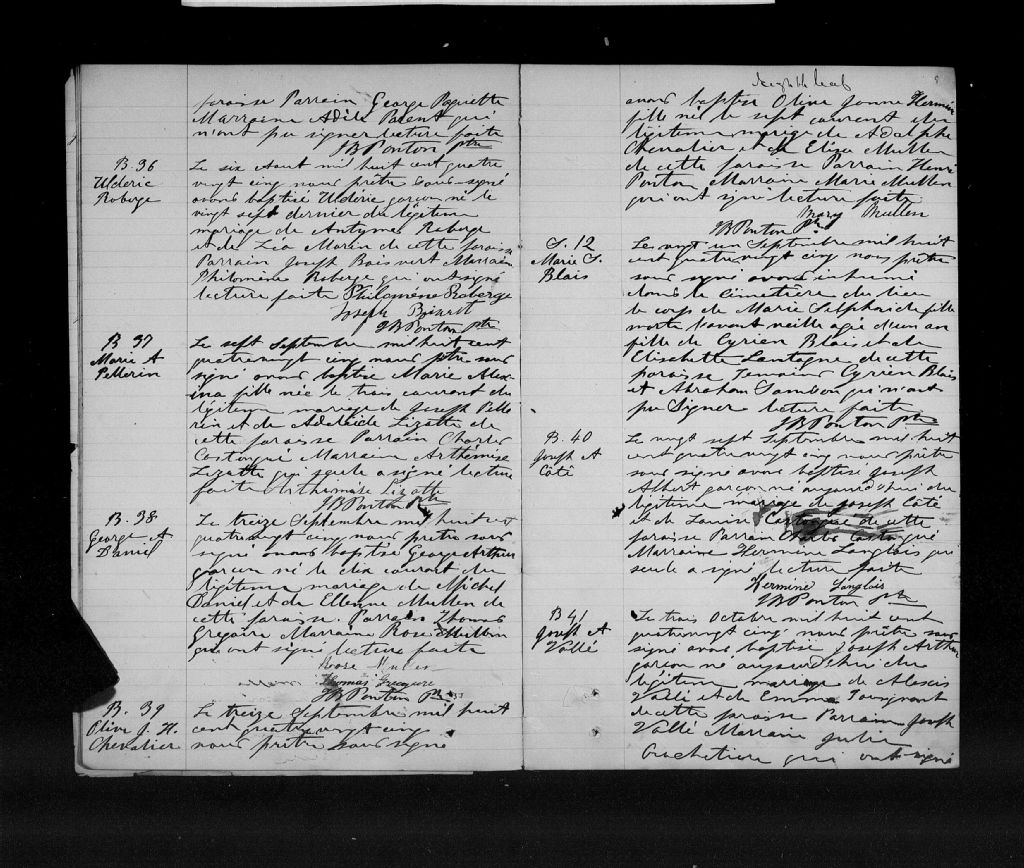 paroisse Parrain George Paquette
Marraine Adèle Parent qui
n'ont pu signer lecture faite
JB Ponton Ptre
B 36
Ulderic
Roberge
Le six Aout mil huit cent quatre
vingt cinq nous prêtre sous-signé
avons baptisé Ulderic garçon né le
vingt sept dernier du légitime
mariage de Roberge
et de Morin de cette paroisse
Parrain Joseph Boisvert Marraine
Philomène Roberge qui ont signé
lecture faite Philomène Roberge
Joseph
JB Ponton Ptre
B 37
Marie A
Pellerin
Le sept Septembre mil huit cent
quatrevingt cinq nous ptre sous
signé avons baptisé Marie Alex-
ina fille née le trois courant du
légitime mariage de Joseph Pelle
rin et de Adelaide Lizotte de
cette paroisse Parrain Charles
Castongué Marraine Arthémise
Lizotte qui seule a signé lecture
faite Arthemise Lizotte
JB Ponton Ptre
B. 38
George A
Daniel
Le treize Septembre mil huit cent
quatrevingt cinq nous prêtre sous
signé avons baptisé George Arthur
garçon né le dix courant du
légitime mariage de Michel
Daniel et de Ellenne Mullen de
cette paroisse. Parrain Thomas
Gregoire Marraine Rose Mullen
qui ont signé lecture faite
Roose
Thomas Gregoire
JB Ponton Ptre
B. 39
Olive J. H.
Chevalier
Le treize Septembre mil huit
cent quatre vingt cinq
nous prêtre sous signé
leaf
avons baptisé Olive Jonne Hermin
fille née le sept courant du
légitime mariage de Adolphe
Chevalier et de Eliza Mullen
de cette paroisse Parrain Henri
Ponton Marraine Marie Mullen
qui ont signé lecture faite
Mary Mullen
JB Ponton Ptre
S. 12
Marie S.
Blais
Le vingt un Septembre mil huit
cent quatre vingt cinq nous prêtre
sous signé avons inhumé
dans le Cimetière du lieu
le corps de Marie fille
morte l'avant veille agée d'un an
fille de Cyrien Blais et de
Elisabette de cette
paroisse Temoins Cyrien Blais
et Abraham qui n'ont
pu Signer lecture faite
JB Ponton Ptre
B. 40
Joseph A
Côté
Le vingt sept Septembre mil huit
cent quatre vingt cinq nous prêtre
sous signé avons baptisé Joseph
Albert garçon né aujourd'hui du
légitime mariage de Joseph Côté
et de Louise Castongué de cette
paroisse Parrain Castongué
Marraine Hermine Langlois qui
seule a signé lecture faite
Hermine Langlois
JB Ponton Ptre
B 41
Joseph A
Vallé
Le trois Octobre mil huit cent
quatrevingt cinq nous prêtre sous
signé avons baptisé Joseph Arthur
garçon né aujourd'hui du
légitime mariage de Alexis
Vallé et de Emma Tourgnant
de cette paroisse Parrain Joseph
Vallé Marraine Julie
qui ont signé